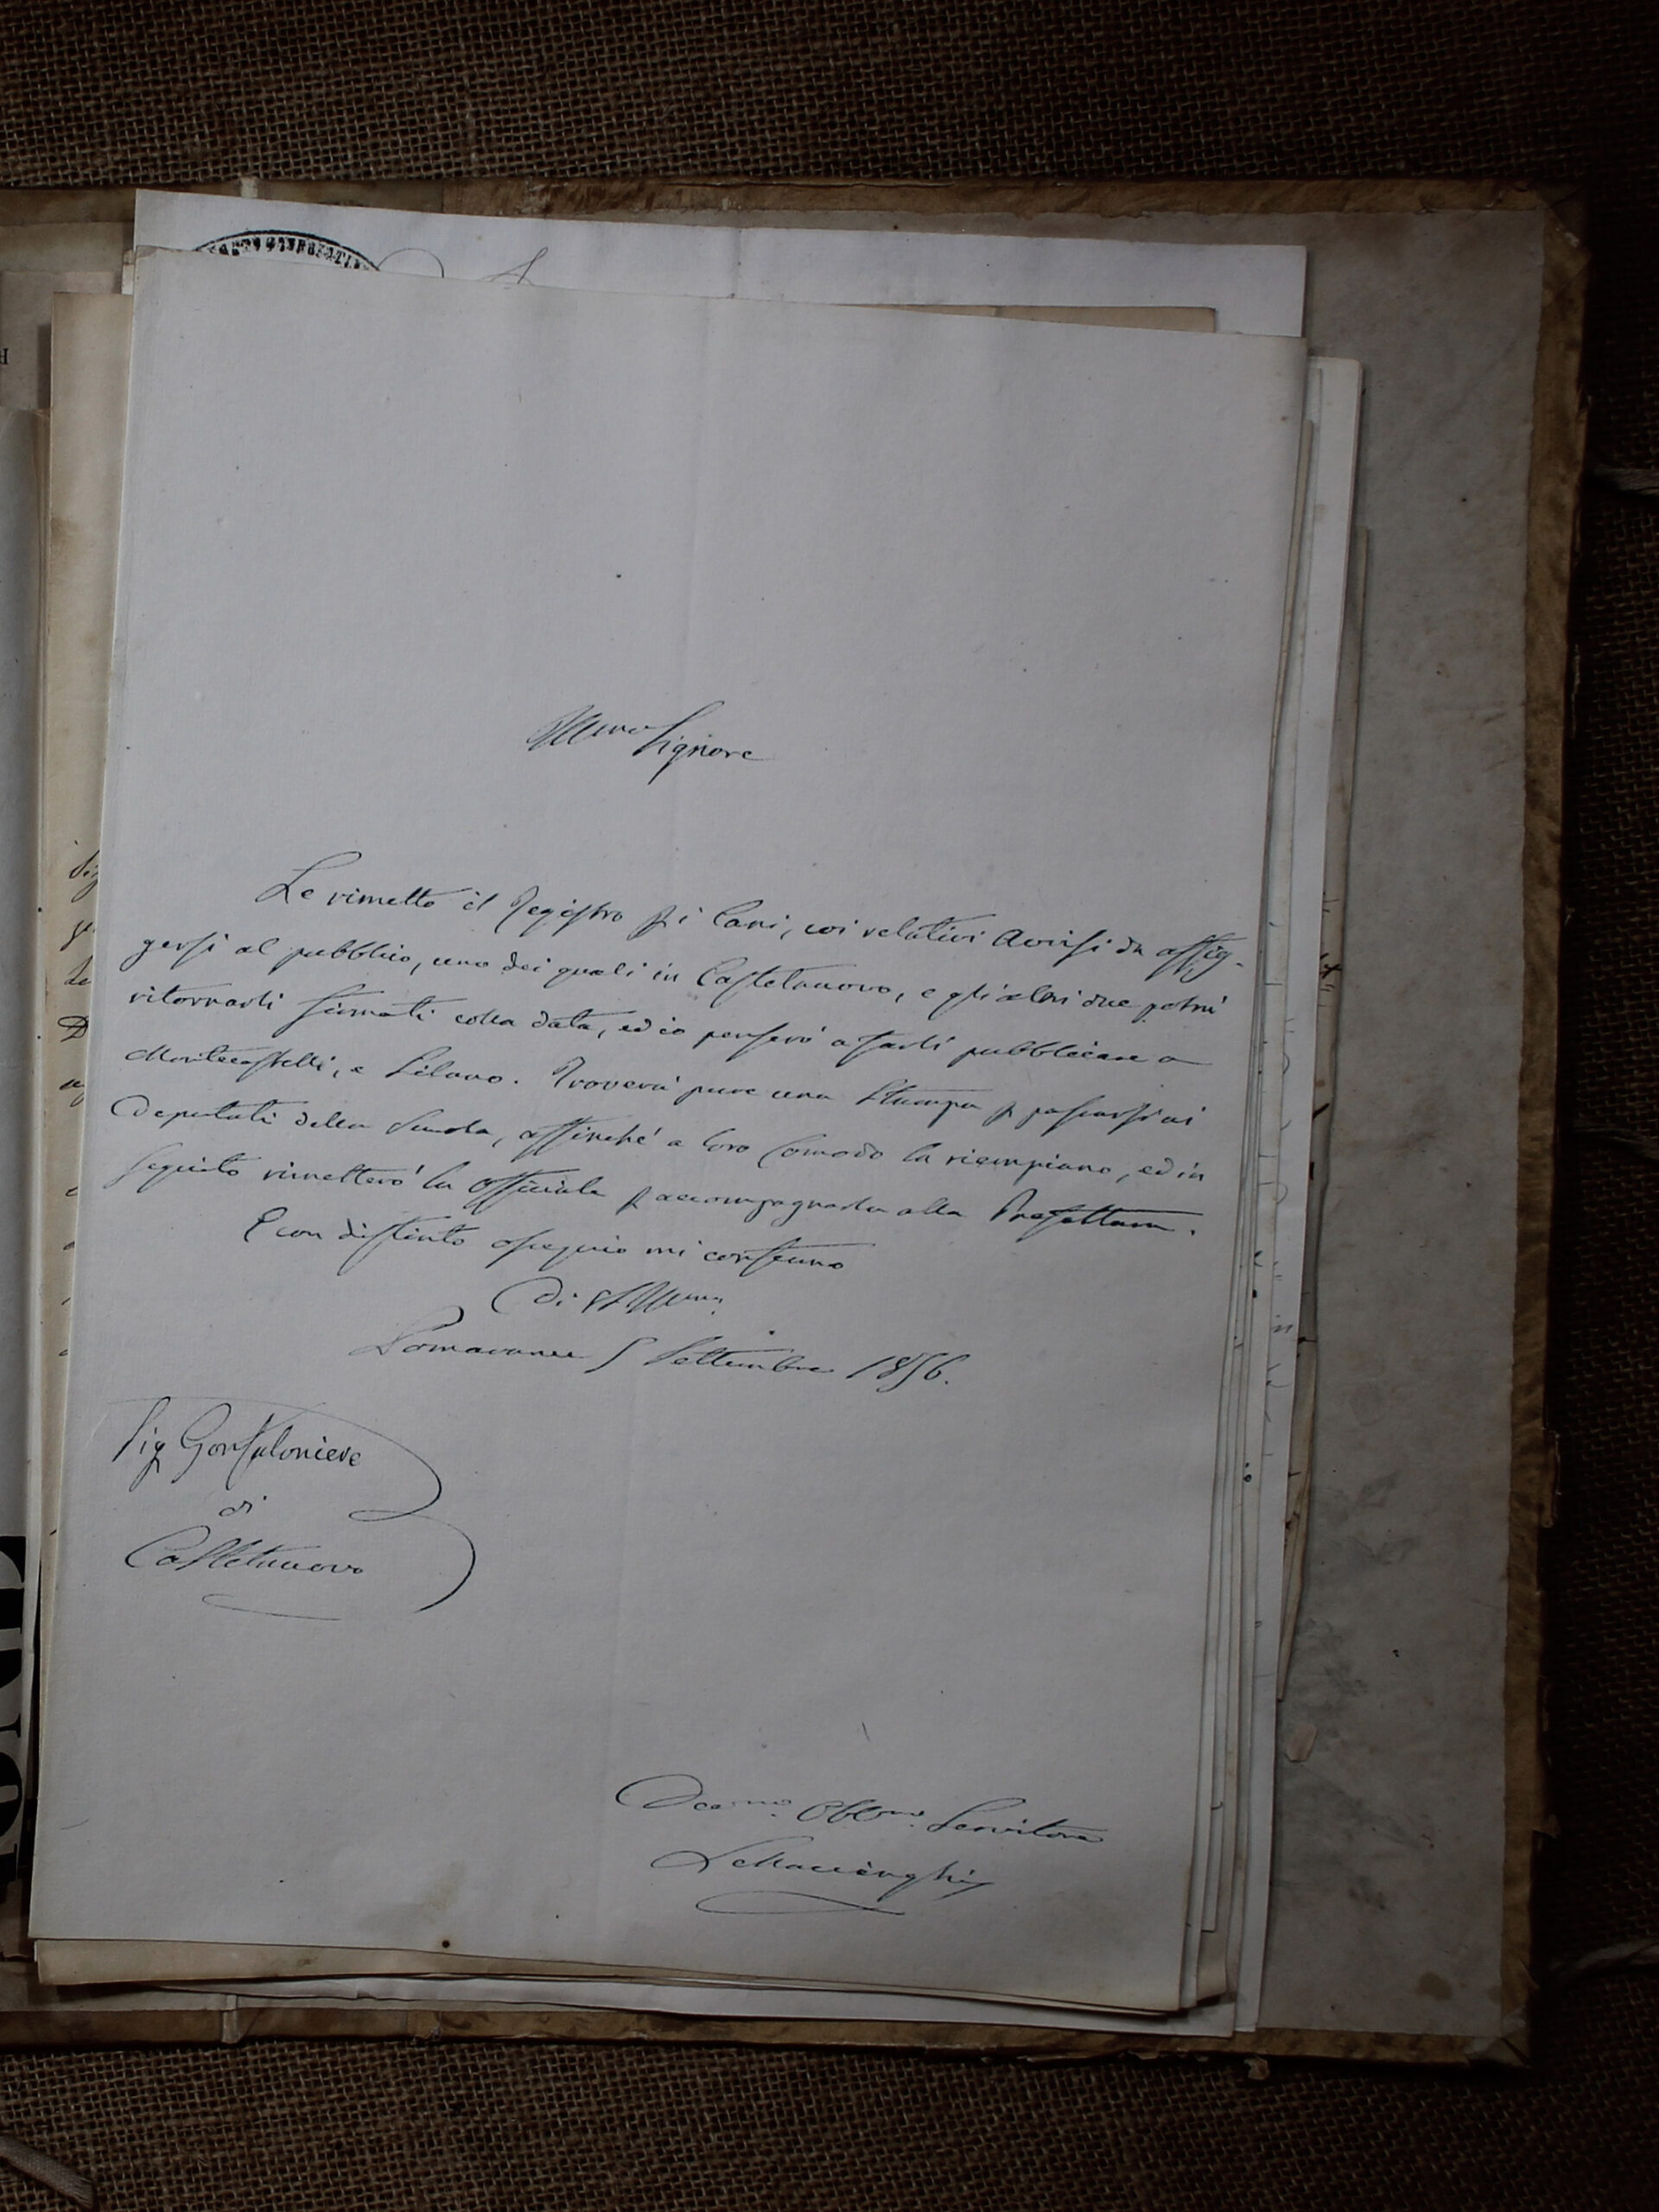 Illmo Signore
Le rimetto il Registro p i Cani, coi relativi Avvisi da affig-
gersi al pubblico, uno dei quali in Castelnuovo, e gli altri due potrà
ritornarli firmati colla data, ed io penserò a farli pubblicare a
Montecastelli, e Silano. Troverà pure una Stampa p passarsi ai
Deputati della Scuola, affinché a loro Comodo la riempiano, ed in
seguito rimetterò la Officiale p accompagnarla alla Prefettura.
E con distinto ossequio mi confermo
Di VS Illma
Pomarance 5 Settembre 1856.
Sig Gonfaloniere
di
Castelnuovo
Devmo Obbmo Servitore